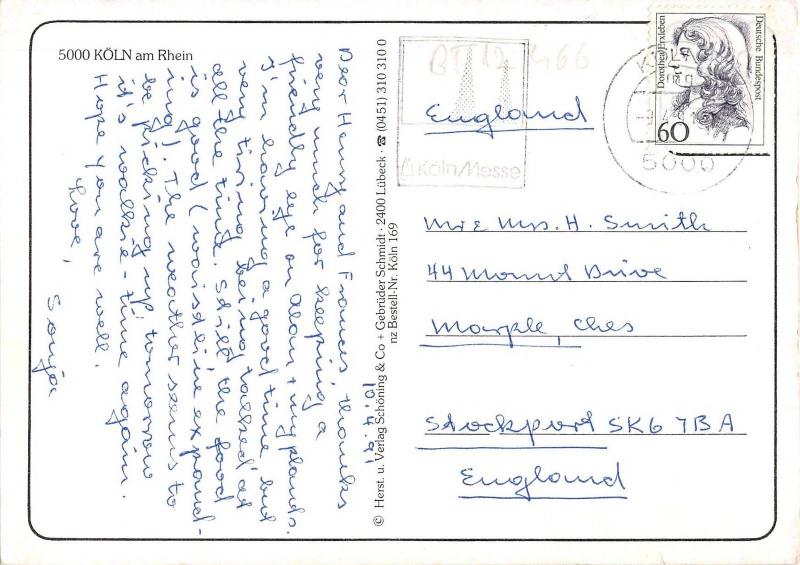 5000 KÖLN am Rhein
10.4.9
Dear Henry and Frances, thanks
very much for keeping a
friendly eye on Alan + my plants.
I'm having a good time but
very tiring being talked at
all the time. Still, the food
is good (waistline expand-
ing). The weather seems to
be picking up; tomorrow
it's walkie-time again.
Hope you are well.
Love,
Sonja
© Herst. u. Verlag Schöning & Co + Gebrüder Schmidt · 2400 Lübeck · ☎ (0451) 310 310 0
nz Bestell-Nr. Köln 169
BTT 12 466
KölnMesse
KÖLN
5000
Dorothea Erxleben
Deutsche Bundespost
60
England
Mr & Mrs. H. Smith
44 Mound Drive
Marple, Ches
Stockport SK6 7BA
England